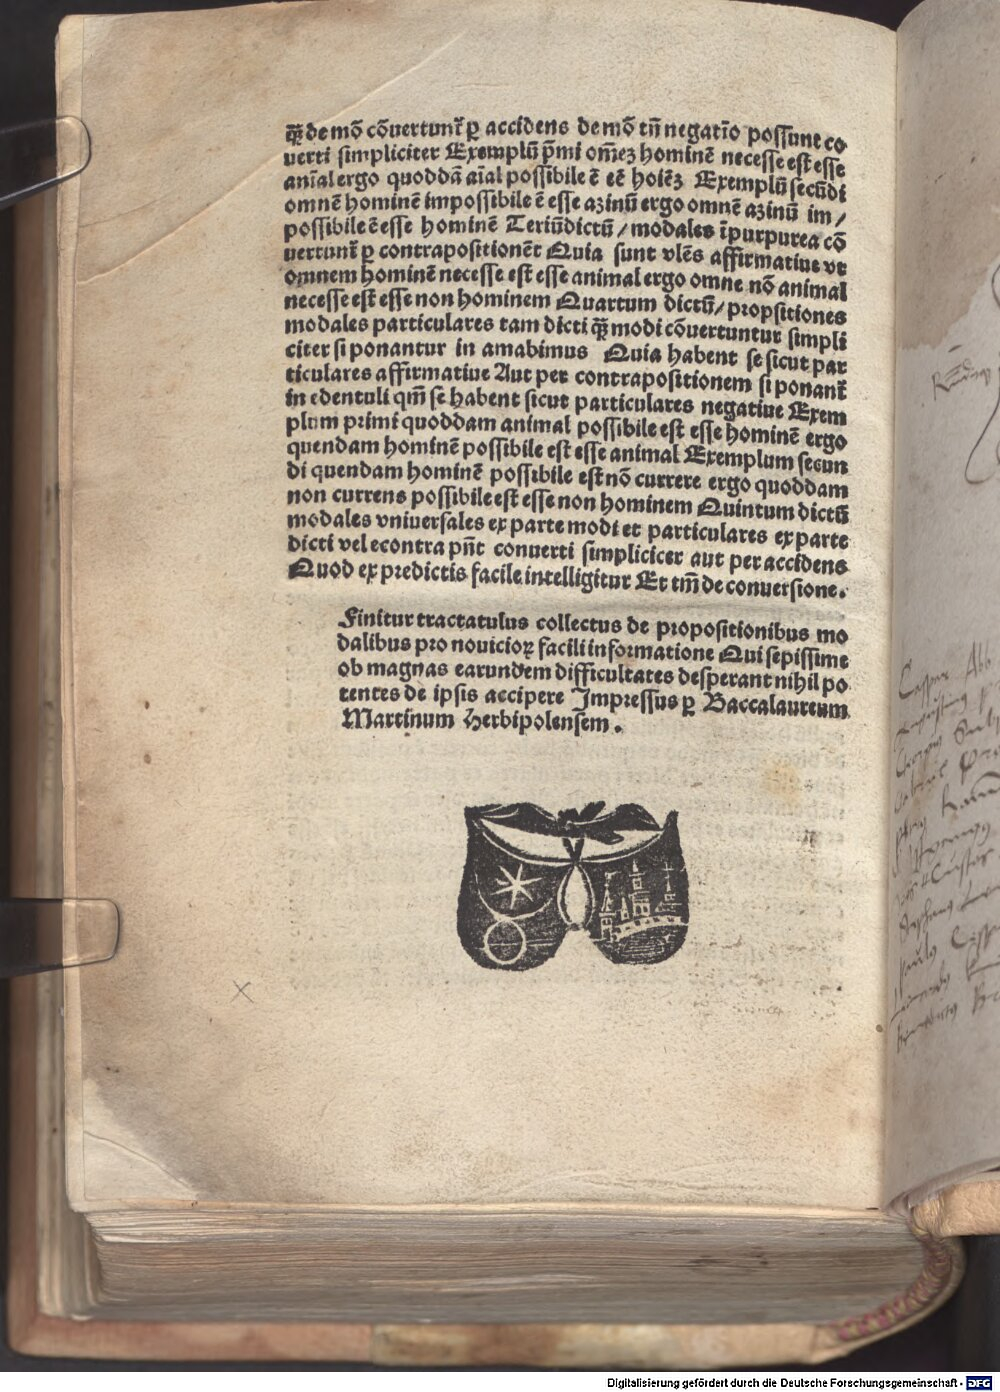 qꝫ de mõ cõuertunt᷑ ꝑ accidens de mõ tñ negatĩo possunt co
uerti simpliciter Exemplũ p̃mi om̃eꝫ hominẽ necesse est esse
anĩal ergo quoddã aĩal possibile ẽ eẽ hoiẽꝫ Exemplũ secũdi
omnẽ hominẽ impossibile ẽ esse azinũ ergo omnẽ azinũ im/
possibile ẽ esse hominẽ Teriũ dictũ/ modales ĩ purpurea cõ
uertunt᷑ ꝑ contrapositionẽt Quia sunt vlẽs affirmatiue vt
omnem hominẽ necesse est esse animal ergo omne nõ animal
necesse est esse non hominem Quartum dictũ/ propsitiones
modales particulares tam dicti qꝫ modi cõuertuntur simpli
citer si ponantur in amabimus Quia habent se sicut par
ticulares affirmatiue Aut per contrapositionem si ponant᷑
in edentuli qm̃ se habent sicut particulares negatiue Exem
plum primi quoddam animal possibile est esse hominẽ ergo
quendam hominẽ possibile est esse animal Exemplum secun
di quendam hominẽ possibile est nõ currere ergo quoddam
non currens possibile est esse non hominem Quintum dictũ
modales vniuersales ex parte modi et particulares ex parte
dicti vel econtra pñt conuerti simplicicer aut per accidens
Quod ex predictis facile intelligitur Et tm̃ de conuersione.
Finitur tractatulus collectus de propositionibus mo
dalibus pro nouicioꝝ facili informatione Qui sepissime
ob magnas earundem difficultates desperant nihil po
tentes de ipsis accipere Impressus ꝑ Baccalaureum
Martinum Herbipolensem.
Caspar Abb
Digitalisierung gefördert durch die Deutsche Forschungsgemeinschaft - DFG